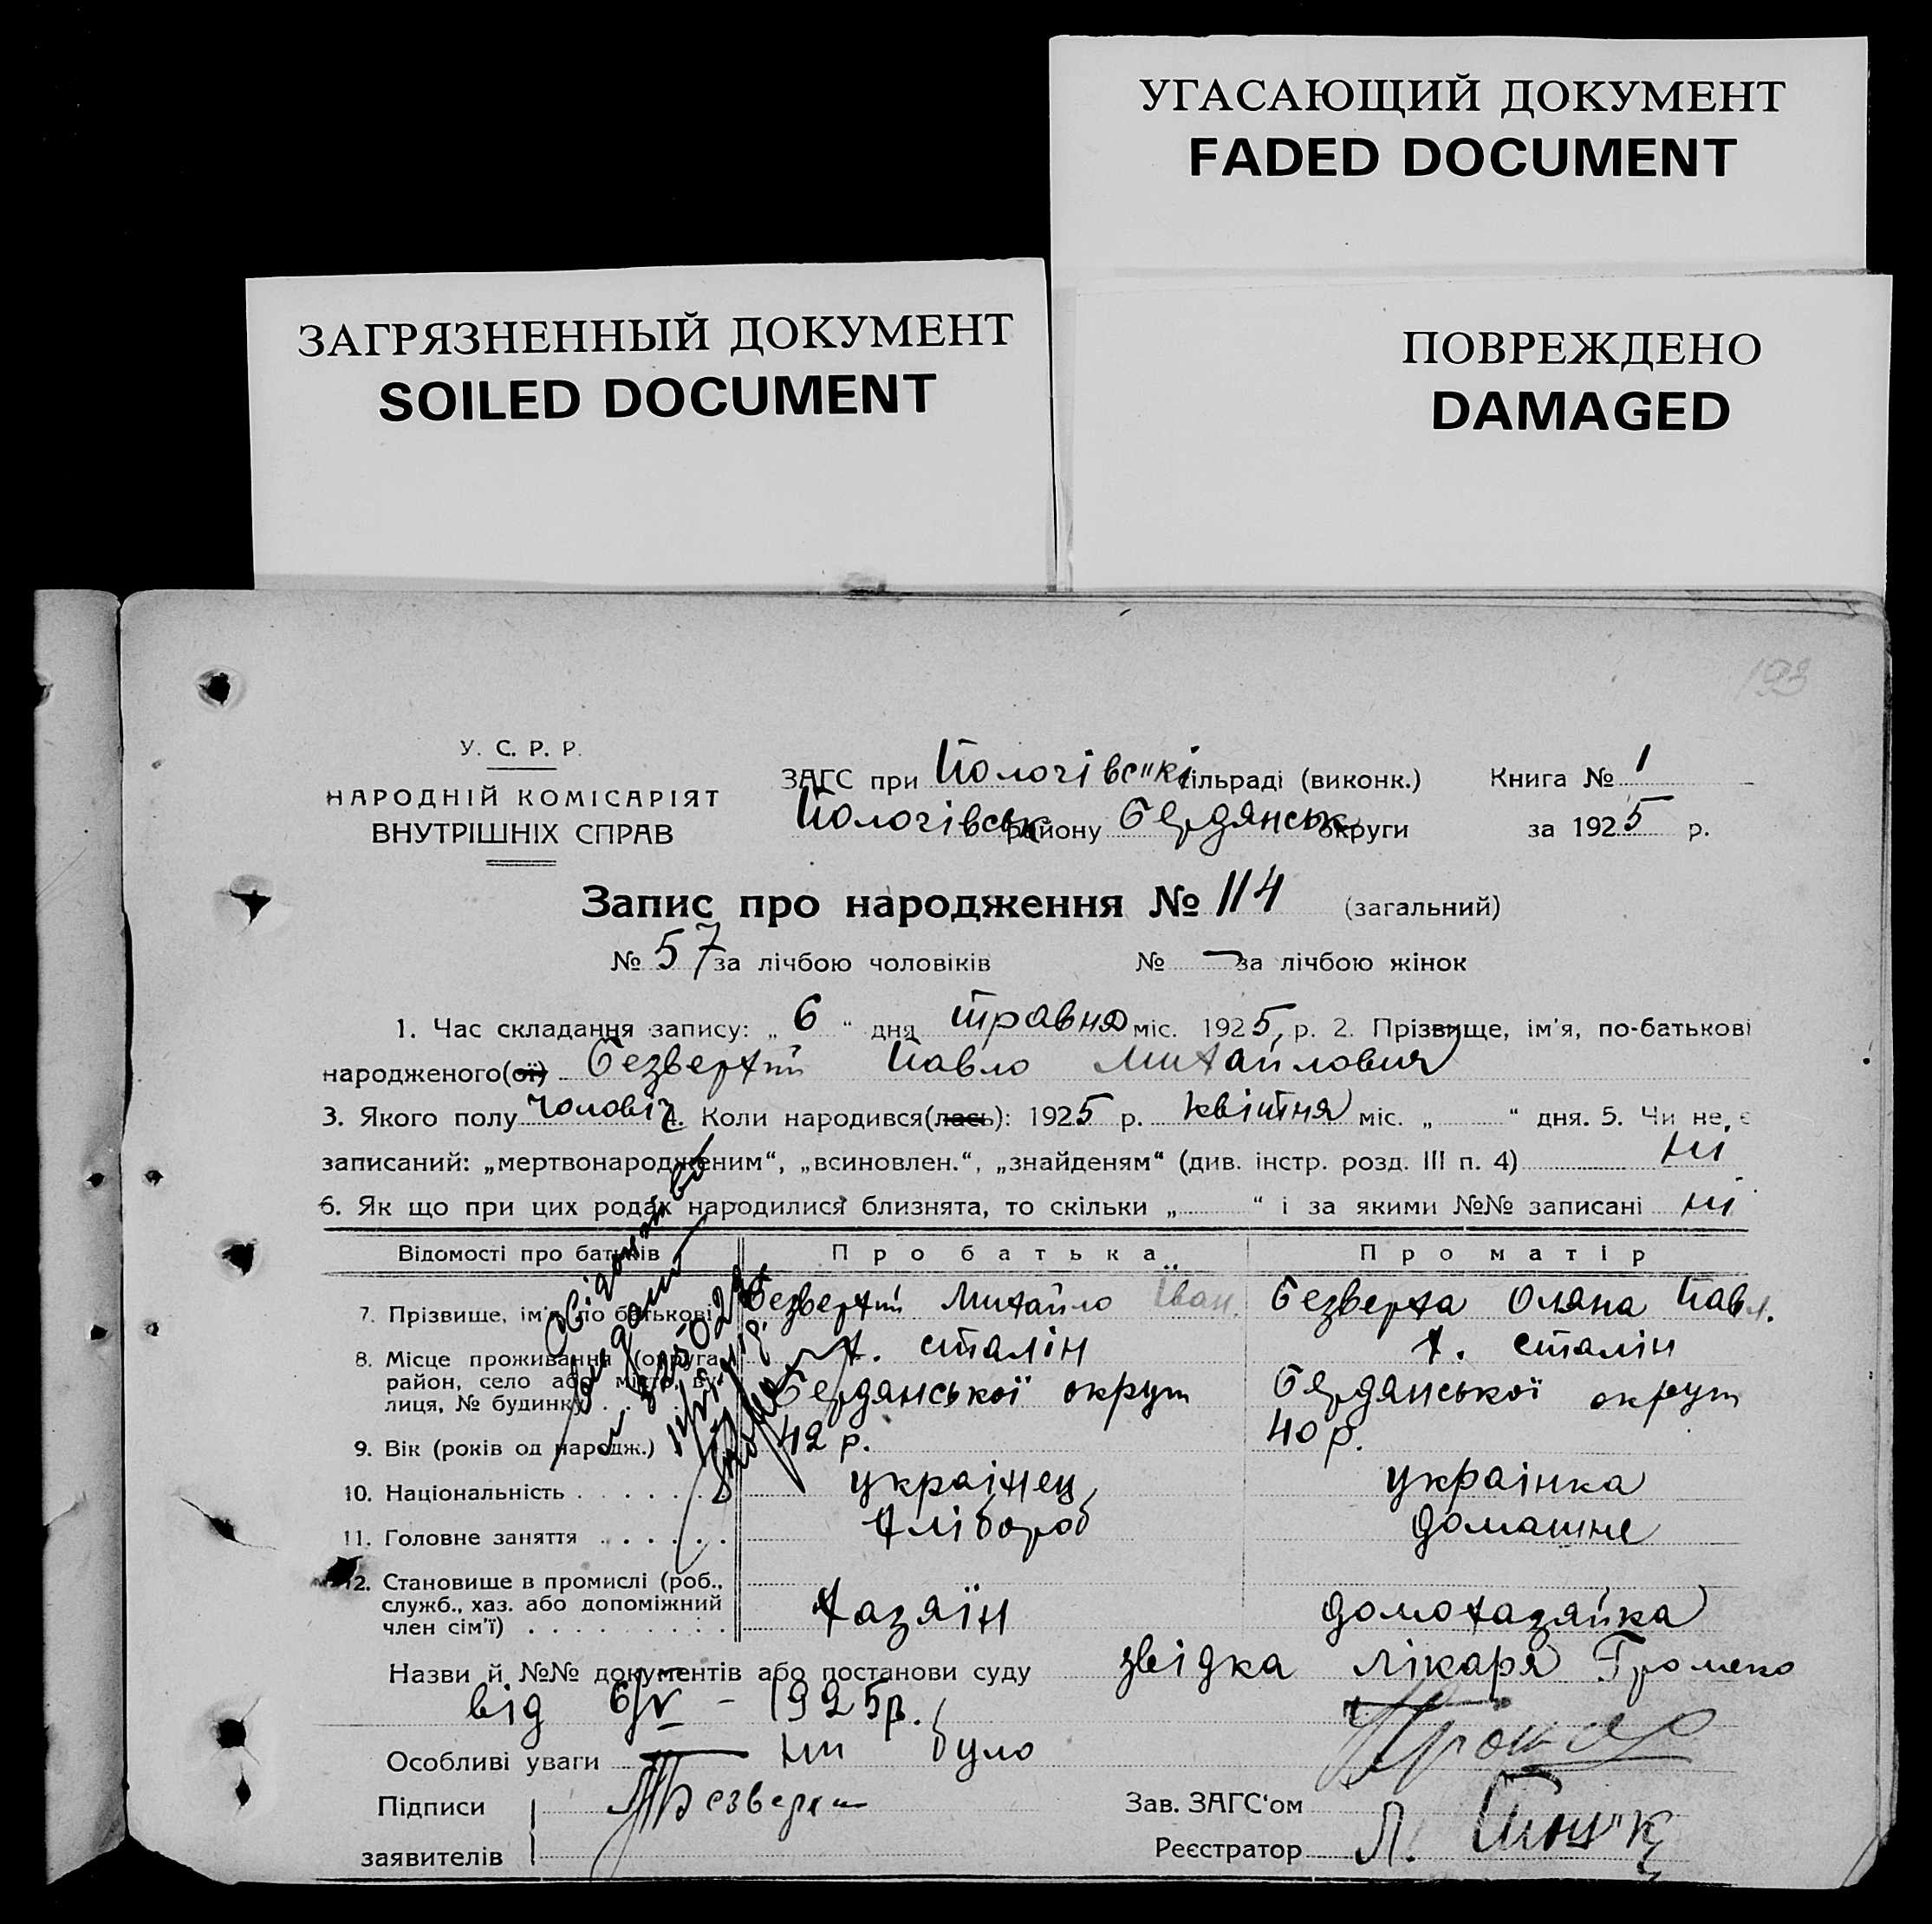 УГАСАЮЩИЙ ДОКУМЕНТ
FADED DOCUMENT
ЗАГРЯЗНЕННЫЙ ДОКУМЕНТ
SOILED DOCUMENT
ПОВРЕЖДЕНО
DAMAGED
193
У. С. Р. Р.
НАРОДНІЙ КОМІСАРІЯТ
ВНУТРІШНІХ СПРАВ
ЗАГС при Пологівські сільраді (виконк.) Книга № 1
Пологівськ району Бердянськ округи за 1925 р.
Запис про народження № 114 (загальний)
№ 57 за лічбою чоловіків № — за лічбою жінок
1. Час складання запису: „ 6 “ дня травня міс. 1925 р. 2. Прізвище, ім'я, по-батькові
народженого(ої) Безверхий Павло Михайлович
3. Якого полу чоловіч 4. Коли народився(лась): 1925 р. квітня міс. „ “ дня. 5. Чи не є
записаний: „мертвонародженим“, „всиновлен.“, „знайденям“ (див. інстр. розд. III п. 4) ні
6. Як що при цих родах народилися близнята, то скільки „ “ і за якими №№ записані ні
Відомості про батьків Про батька Про матір
7. Прізвище, ім'я, по батькові Безверхий Михайло Іван. Безверха Оляна Павл.
8. Місце проживання (округа, район, село або місто, вулиця, № будинку х. сталін х. сталін
Бердянської округи Бердянської округи
9. Вік (років од народж.) 42 р. 40 р.
10. Національність українец українка
11. Головне заняття хлібороб домашнє
12. Становище в промислі (роб.,
служб., хаз. або допоміжний
член сім'ї) хазяїн домохазяйка
Назви й №№ документів або постанови суду звідка лікаря Громеко
від 6/V - 1925р.
Особливі уваги ни було
Підписи Безверхи Зав. ЗАГС'ом
заявителів Реєстратор Л.